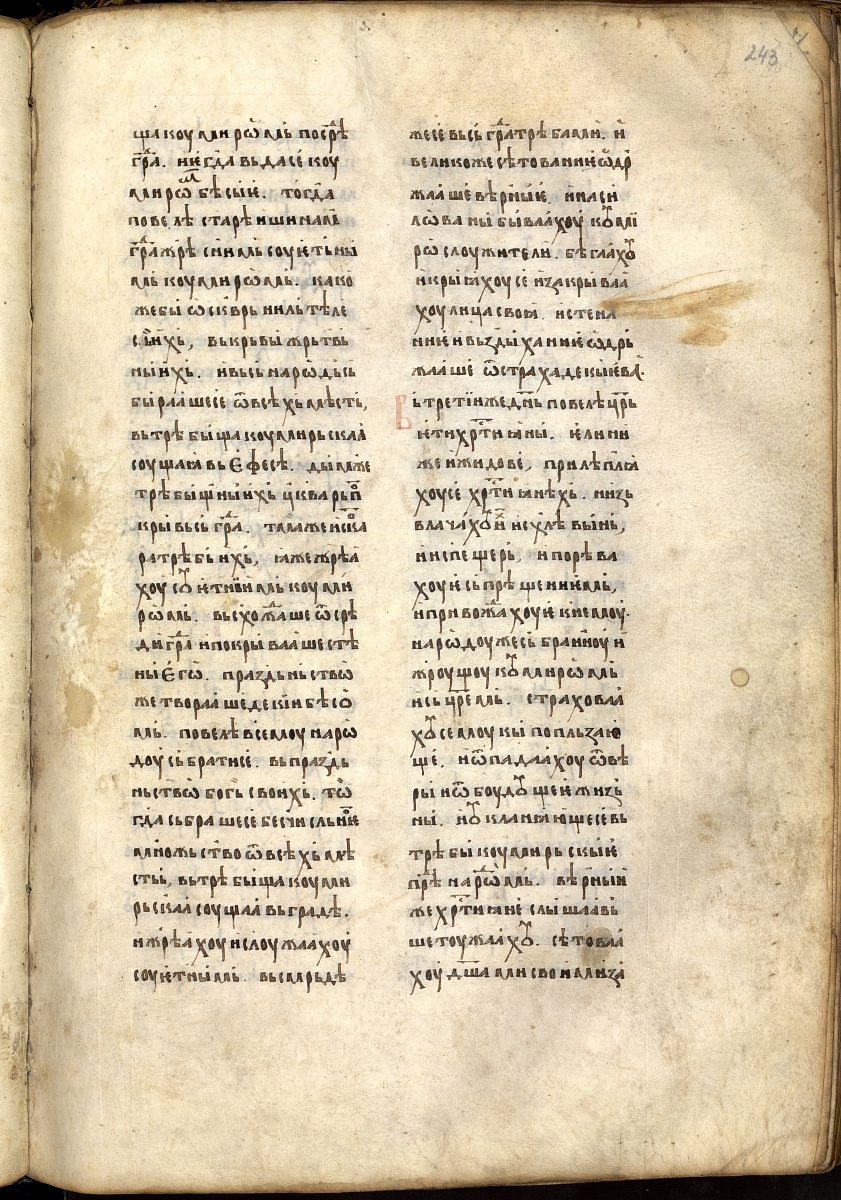 243
ща коумирѡмь посрⷣѣ
граⷣ. ѥгда вьдасе коу
миро бѣсыѥ. тогда
повелѣ старѣишинамь
граⷣ жрѣ снимь соуѥтьны
мь коумирѡмь. како
же бы ѡскврьнилъ тѣле
сы ихь, вькрьвы жрьтвь
ныихь. ивьсь нарѡдь сь
бырааше се ѿвсѣхь мѣсть,
вьтрѣбыща коумирьскаа
соущаꙗ вь Ефесѣ. дымже
трѣбыщныихь
кры вьсь граⷣ.
ра трѣбьихь, ꙗже жрѣа
хоу соуѥтныимь коуми
рѡмь. вьсхожⷣааше ѿсрѣ
ды граⷣ ипокрывааше стѣ
ны Егѡ. праздьньствѡ
же твораашедекіи бѣсѡ
мь. повелѣ всемоу нарѡ
доу сьбратисе. вьпраздь
ньствѡ богь своихь. тѡ
гда сьбраше се бесчисльноѥ
множьство ѿвсѣхь мѣ
сть, вьтрѣбыща коуми
рьскаа соущаа вьградѣ.
ижрѣахоу ислоужаахоу
соуѥтнымь. вьсмрьдѣ
же се вьсь граⷣ трѣбами. и
великоже сѣтованиѥ ѡдр
жааше вѣрныѥ. инаси
лѡваны бывааⷯоу кꙋмі
рѡслоужители. бѣгаахꙋ
икрыꙗхоусе изакрываа
хоу лица своꙗ. истена
ниѥ ивьздыханиѥ ѡдрь
жааше ѿстраха декыева.
Вьтретіи же днь повелѣ црь
ѥти хрⷭтиꙗны. ѥлици
же ижидове, прилѣплꙗ
хоусе хрⷭтиꙗнѣхь. низь
влачахꙋ исхлѣвынь,
ииспещерь, ипорѣва
хоу ѥ сьпрѣщениѥмь,
ипривожⷣаахоу ѥ кнемоу.
нарѡдоу же сьбранноу и
жроущоу кꙋмирѡмь
исьцремь. страховаа
хꙋсе моукы попльзаю
ще. иѿпадаахоу ѿвѣ
ры иѿбоудꙋщеѥ жизь
ны. иꙋкланꙗющесе вь
трѣбы коумирьскыѥ
прⷣѣ нарѡⷣмь. вѣрныи
же хрⷭтиꙗне слышаавь
ше тоужаахꙋ. сѣтоваа
хоу дшами своими за